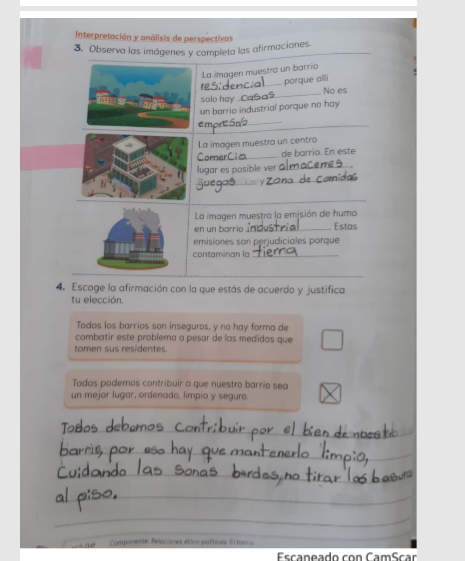 Interpretación y análisis de perspectivas
3. Observa las imágenes y completa las afirmaciones.
La imagen muestra un barrio
residencial porque allí
solo hay casas. No es
un barrio industrial porque no hay
empresas
La imagen muestra un centro
Comercio de barrio. En este
lugar es posible ver almacenes,
juegos y zona de comidas
La imagen muestra la emisión de humo
en un barrio industrial. Estas
emisiones son perjudiciales porque
contaminan la tierra
4. Escoge la afirmación con la que estás de acuerdo y justifica
tu elección.
Todos los barrios son inseguros, y no hay forma de
combatir este problema a pesar de las medidas que
tomen sus residentes.
Todos podemos contribuir a que nuestro barrio sea
un mejor lugar, ordenado, limpio y seguro.
Todos debemos contribuir por el bien de nuestro
barrio, por eso hay que mantenerlo limpio,
Cuidando las sonas berdes, no tirar las basura
al piso.
Componente: Relaciones ético-políticas.
Escaneado con CamScar